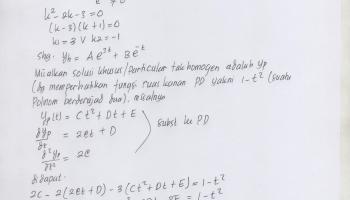 k² - 2k - 3 = 0
(k-3)(k+1) = 0
k₁ = 3 V k₂ = -1
shg. y_h = Ae^{3t} + Be^{-t}
Misalkan solusi khusus/particular tak homogen adalah yp
(dg memperhatikan fungsi ruas kanan PD yakni 1-t² (suatu
Polinom berderajad dua), misalnya
yp(t) = Ct² + Dt + E
dyp/dt = 2Ct + D
subst ke PD
d²yp/dt² = 2C
didapat:
2C - 2(2Ct + D) - 3(Ct² + Dt + E) = 1 - t²